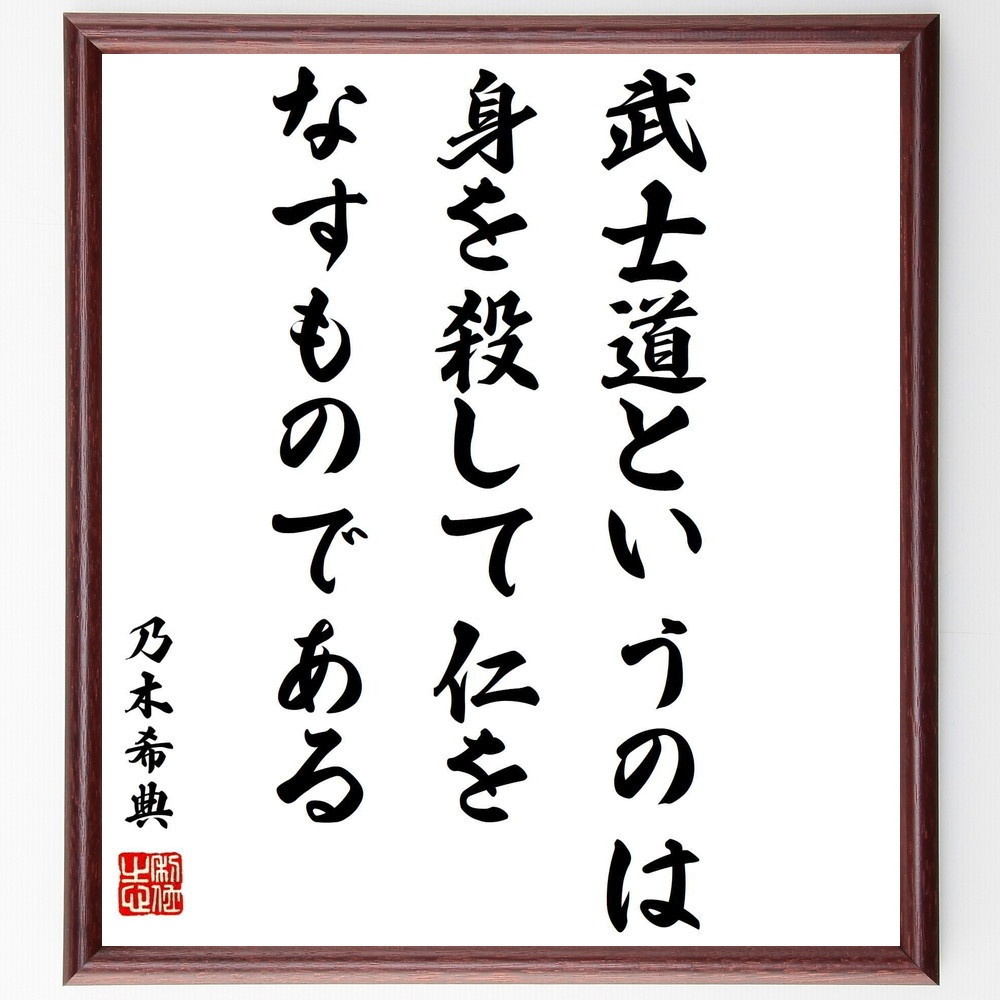 武士道というのは
身を殺して仁を
なすものである
乃木希典